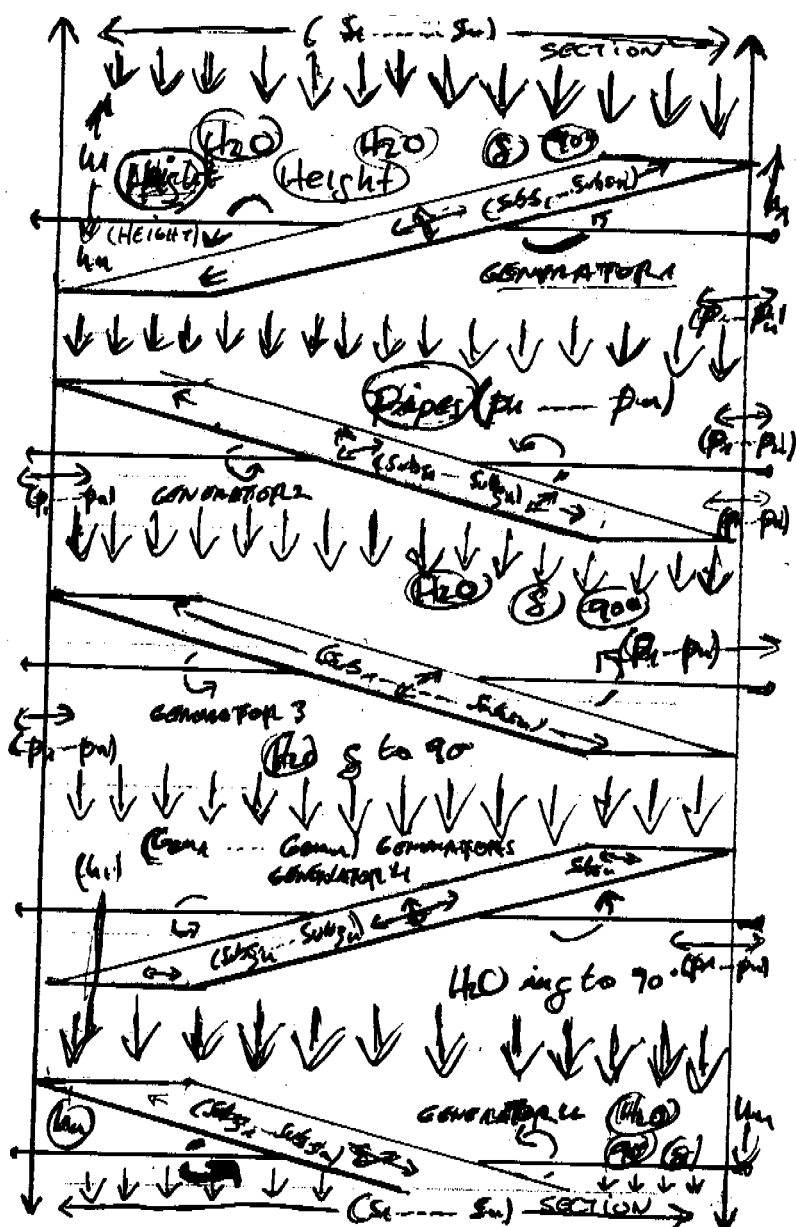 (S1 ------ Sn)
SECTION
H2O H2O g 90°
Height Height
(HEIGHT)
hn
(Subs1 -- Subsn)
h1
GENERATOR 1
(P1 -- Pn)
Pipes (P1 ---- Pn)
(P1 -- Pn)
(Subs1 -- Subsn)
(P1 -- Pn) GENERATOR 2
(P1 -- Pn)
H2O g 90°
(P1 -- Pn)
(Subs1 ---- Subsn)
GENERATOR 3
(P1 -- Pn)
H2O g to 90
(Gen1 ---- Genn) GENERATORS
(h1)
GENERATOR 4
Subsn
(Subs1 -- Subsn)
H2O ing to 90° (P1 -- Pn)
hn
(Subs1 -- Subsn)
GENERATOR n H2O
90° g
hn
(S1 ----- Sn) SECTION